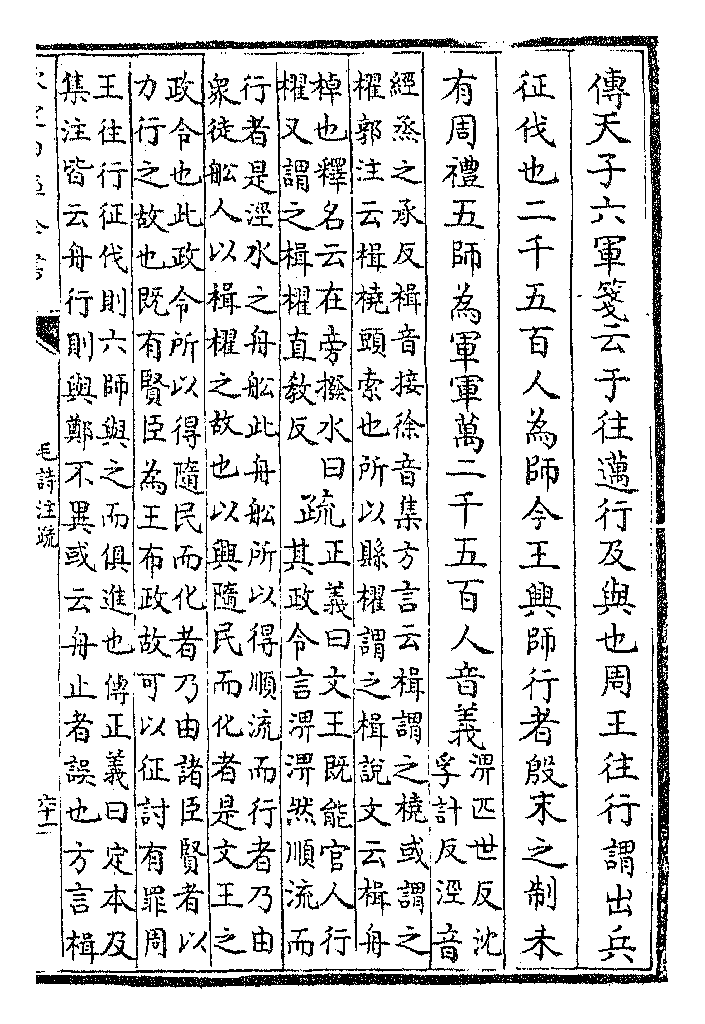 傳天子六軍箋云于往邁行及與也周王往行謂出兵
征伐也二千五百人為師今王興師行者殷末之制未
有周禮五師為軍軍萬二千五百人音義
淠匹世反沈
孚計反涇音
經烝之承反楫音接徐音集方言云楫謂之橈或謂之
櫂郭注云楫橈頭索也所以縣櫂謂之楫說文云楫舟
棹也釋名云在旁撥水曰
櫂又謂之楫櫂直教反
疏
正義曰文王既能官人行
其政令言淠淠然順流而
行者是涇水之舟舩此舟舩所以得順流而行者乃由
衆徒舩人以楫櫂之故也以興隨民而化者是文王之
政令也此政令所以得隨民而化者乃由諸臣賢者以
力行之故也既有賢臣為王布政故可以征討有罪周
王往行征伐則六師與之而俱進也傳正義曰定本及
集注皆云舟行則與鄭不異或云舟止者誤也方言楫
毛詩注疏